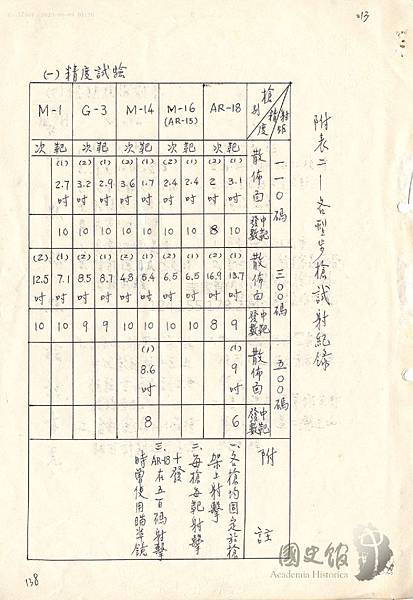 013
附表二－各型步槍試射紀錄
(一)精度試驗
M-1 G-3 M-14 M-16 (AR-15) AR-18 槍別 精度 射距
次 靶 次 靶 次 靶 次 靶 次 靶
(1) (2) (1) (2) (1) (2) (1) (2) (1) 散佈面 一一〇碼
2.7吋 3.2吋 2.9吋 3.6吋 1.7吋 2.4吋 2.4吋 2吋 3.1吋
10 10 10 10 10 10 10 8 10 中靶發數
(2) (1) (2) (1) (2) (1) (2) (1) (2) (1) 散佈面 三〇〇碼
12.5吋 7.1吋 8.5吋 8.7吋 4.8吋 5.4吋 6.5吋 6.5吋 16.9吋 13.7吋
10 10 9 9 10 10 10 10 8 9 中靶發數
(1) (1) 散佈面 五〇〇碼
8.6吋 9吋
8 6 中靶發數
附註
一、各槍均固定於槍
架上射擊
二、每槍每靶射擊
十發
三、AR-18在五百碼射擊
時曾使用瞄準鏡
138
國史館
Academia Historica